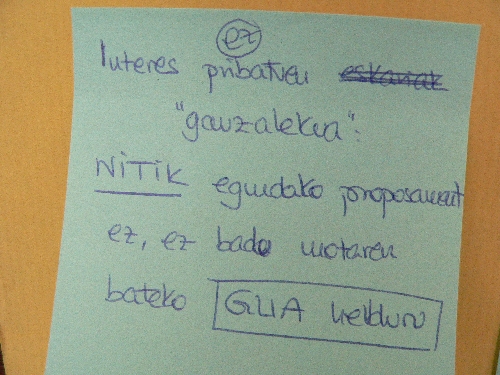 ez
Interes pribatuen eskariak
"gauzalekua":
NITIK egindako proposament
ez, ez bada motaren
bateko GUA helduru